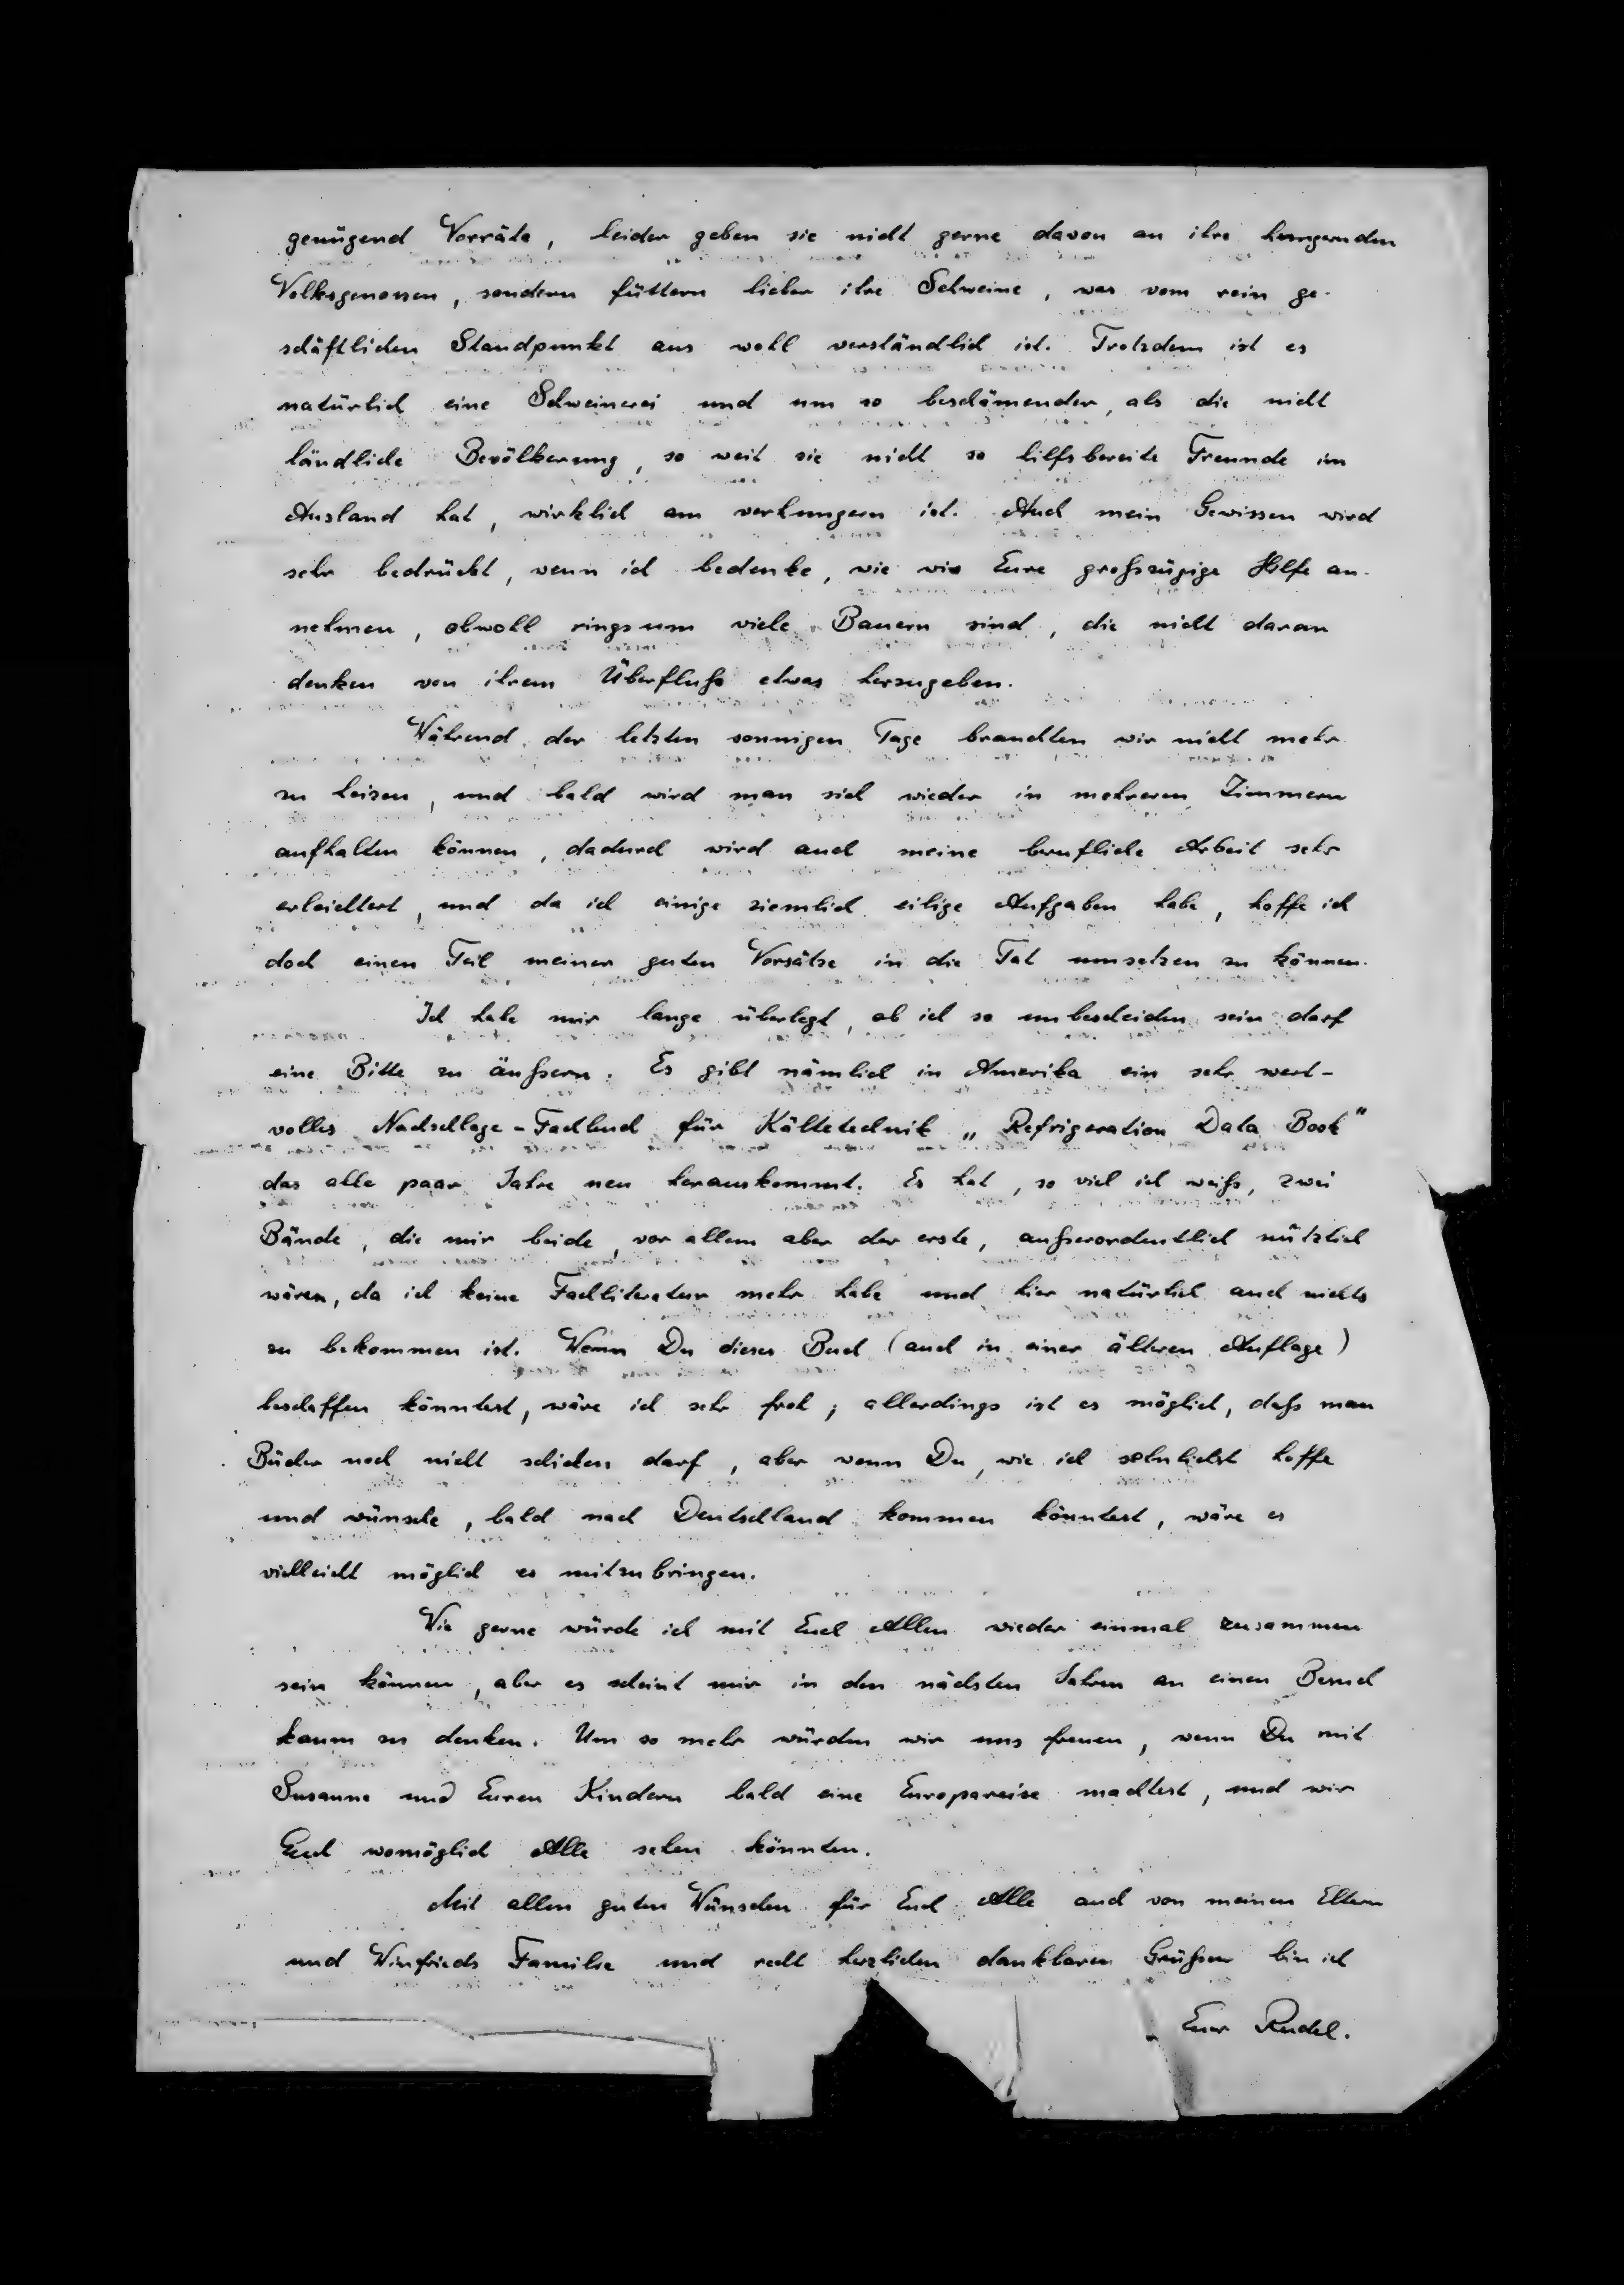 genügend Vorräte, leider geben sie nicht gerne davon an ihre hungernden
Volksgenossen, sondern füttern lieber ihre Schweine, was vom rein ge-
schäftlichen Standpunkt aus wohl verständlich ist. Trotzdem ist es
natürlich eine Schweinerei und um so beschämender, als die nicht
ländliche Bevölkerung, so weit sie nicht so hilfsbereite Freunde im
Ausland hat, wirklich am verhungern ist. Auch mein Gewissen wird
sehr bedrückt, wenn ich bedenke, wie wir Eure großzügige Hilfe an-
nehmen, obwohl ringsum viele Bauern sind, die nicht daran
denken von ihrem Überfluß etwas herzugeben.
Während der letzten sonnigen Tage brauchten wir nicht mehr
zu heizen, und bald wird man sich wieder in mehreren Zimmern
aufhalten können, dadurch wird auch meine berufliche Arbeit sehr
erleichtert, und da ich einige ziemlich eilige Aufgaben habe, hoffe ich
doch einen Teil meiner guten Vorsätze in die Tat umsetzen zu können.
Ich habe mir lange überlegt, ob ich so unbescheiden sein darf
eine Bitte zu äußern. Es gibt nämlich in Amerika ein sehr wert-
volles Nachschlage-Fachbuch für Kältetechnik „Refrigeration Data Book"
das alle paar Jahre neu herauskommt. Es hat, so viel ich weiß, zwei
Bände, die mir beide, vor allem aber der erste, außerordentlich nützlich
wären, da ich keine Fachliteratur mehr habe und hier natürlich auch nichts
zu bekommen ist. Wenn Du dieses Buch (auch in einer älteren Auflage)
beschaffen könntest, wäre ich sehr froh; allerdings ist es möglich, daß man
Bücher noch nicht schicken darf, aber wenn Du, wie ich sehnlichst hoffe
und wünsche, bald nach Deutschland kommen könntest, wäre es
vielleicht möglich es mitzubringen.
Wie gerne würde ich mit Euch Allen wieder einmal zusammen
sein können, aber es scheint mir in den nächsten Jahren an einen Besuch
kaum zu denken. Um so mehr würden wir uns freuen, wenn Du mit
Susanne und Euren Kindern bald eine Europareise machtest, und wir
Euch womöglich Alle sehen könnten.
Mit allen guten Wünschen für Euch Alle auch von meinen Eltern
und Winfrieds Familie und recht herzlichen dankbaren Grüßen bin ich
Euer Rudel.